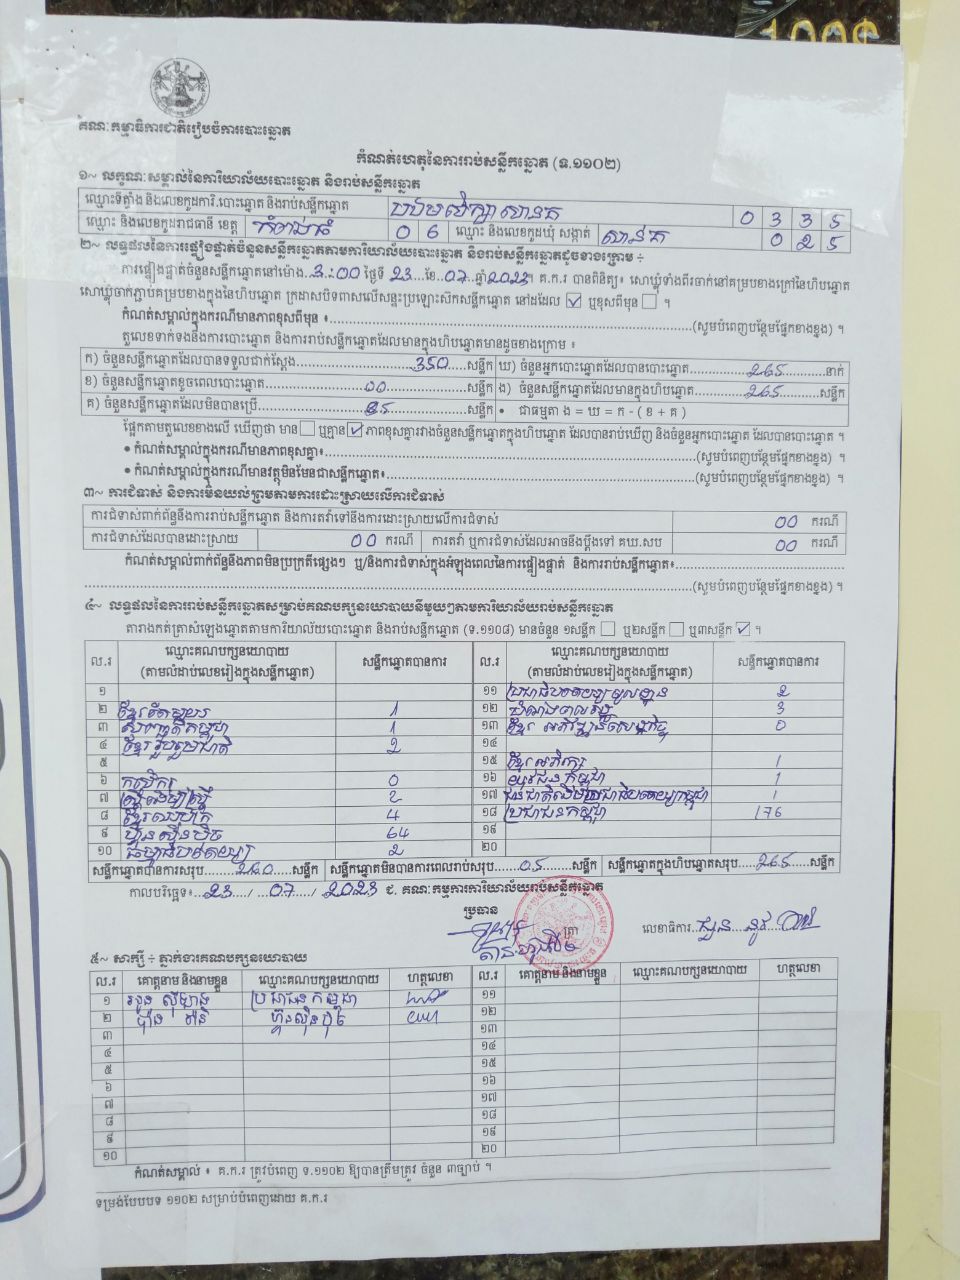 គណៈកម្មាធិការជាតិរៀបចំការបោះឆ្នោត
កំណត់ហេតុនៃការរាប់សន្លឹកឆ្នោត (ទ.១១០២)
១~ លក្ខណៈសម្គាល់នៃការិយាល័យបោះឆ្នោត និងរាប់សន្លឹកឆ្នោត
ឈ្មោះទីតាំង និងលេខកូដការិ.បោះឆ្នោត និងរាប់សន្លឹកឆ្នោត 0 3 3 5
ឈ្មោះ និងលេខកូដរាជធានី ខេត្ត កំពង់ធំ 0 6 ឈ្មោះ និងលេខកូដឃុំ សង្កាត់ 0 2 5
២~ លទ្ធផលនៃការផ្ទៀងផ្ទាត់ចំនួនសន្លឹកឆ្នោតតាមការិយាល័យបោះឆ្នោត និងរាប់សន្លឹកឆ្នោតដូចខាងក្រោម ÷
ការផ្ទៀងផ្ទាត់ចំនួនសន្លឹកឆ្នោតនៅម៉ោង 3:00 ថ្ងៃទី 23 ខែ 07 ឆ្នាំ 2023 គ.ក.រ បានពិនិត្យ៖ សោឃ្លុំទាំងពីរចាក់នៅគម្របខាងក្រៅនៃហិបឆ្នោត
សោឃ្លុំចាក់ភ្ជាប់គម្របខាងក្នុងនៃហិបឆ្នោត ក្រដាសបិទពាសលើសន្ទះប្រឡោះសិកសន្លឹកឆ្នោត នៅដដែល ☑ ឬខុសពីមុន ☐ ។
កំណត់សម្គាល់ក្នុងករណីមានភាពខុសពីមុន ៖ (សូមបំពេញបន្ថែមផ្នែកខាងខ្នង) ។
តួលេខទាក់ទងនឹងការបោះឆ្នោត និងការរាប់សន្លឹកឆ្នោតដែលមានក្នុងហិបឆ្នោតមានដូចខាងក្រោម ៖
ក) ចំនួនសន្លឹកឆ្នោតដែលបានទទួលជាក់ស្តែង 350 សន្លឹក ឃ) ចំនួនអ្នកបោះឆ្នោតដែលបានបោះឆ្នោត 265 នាក់
ខ) ចំនួនសន្លឹកឆ្នោតខូចពេលបោះឆ្នោត 00 សន្លឹក ង) ចំនួនសន្លឹកឆ្នោតដែលមានក្នុងហិបឆ្នោត 265 សន្លឹក
គ) ចំនួនសន្លឹកឆ្នោតដែលមិនបានប្រើ 85 សន្លឹក • ជាធម្មតា ង = ឃ = ក - ( ខ + គ )
ផ្អែកតាមតួលេខខាងលើ ឃើញថា មាន ☐ ឬគ្មាន ☑ ភាពខុសគ្នារវាងចំនួនសន្លឹកឆ្នោតក្នុងហិបឆ្នោត ដែលបានរាប់ឃើញ និងចំនួនអ្នកបោះឆ្នោត ដែលបានបោះឆ្នោត ។
• កំណត់សម្គាល់ក្នុងករណីមានភាពខុសគ្នា៖ (សូមបំពេញបន្ថែមផ្នែកខាងខ្នង) ។
• កំណត់សម្គាល់ក្នុងករណីមានវត្ថុមិនមែនជាសន្លឹកឆ្នោត៖ (សូមបំពេញបន្ថែមផ្នែកខាងខ្នង) ។
៣~ ការជំទាស់ និងការមិនយល់ព្រមតាមការដោះស្រាយលើការជំទាស់
ការជំទាស់ពាក់ព័ន្ធនឹងការរាប់សន្លឹកឆ្នោត និងការតវ៉ាទៅនឹងការដោះស្រាយលើការជំទាស់ 00 ករណី
ការជំទាស់ដែលបានដោះស្រាយ 00 ករណី ការតវ៉ា ឬការជំទាស់ដែលអាចនឹងប្តឹងទៅ គឃ.សប 00 ករណី
កំណត់សម្គាល់ពាក់ព័ន្ធនឹងភាពមិនប្រក្រតីផ្សេងៗ ឬ/និងការជំទាស់ក្នុងអំឡុងពេលនៃការផ្ទៀងផ្ទាត់ និងការរាប់សន្លឹកឆ្នោត៖
(សូមបំពេញបន្ថែមផ្នែកខាងខ្នង) ។
៤~ លទ្ធផលនៃការរាប់សន្លឹកឆ្នោតសម្រាប់គណបក្សនយោបាយនីមួយៗតាមការិយាល័យរាប់សន្លឹកឆ្នោត
តារាងកត់ត្រាសំឡេងឆ្នោតតាមការិយាល័យបោះឆ្នោត និងរាប់សន្លឹកឆ្នោត (ទ.១១០៨) មានចំនួន ១សន្លឹក ☐ ឬ២សន្លឹក ☐ ឬ៣សន្លឹក ☑ ។
ល.រ ឈ្មោះគណបក្សនយោបាយ (តាមលំដាប់លេខរៀងក្នុងសន្លឹកឆ្នោត) សន្លឹកឆ្នោតបានការ ល.រ ឈ្មោះគណបក្សនយោបាយ (តាមលំដាប់លេខរៀងក្នុងសន្លឹកឆ្នោត) សន្លឹកឆ្នោតបានការ
១ ១១ ប្រជាធិបតេយ្យមូលដ្ឋាន 2
២ 1 ១២ 3
៣ 1 ១៣ ខ្មែរ អភិវឌ្ឍន៍សេដ្ឋកិច្ច 0
៤ ខ្មែររួបរួមជាតិ 2 ១៤
៥ ១៥ ខ្មែរអភិរក្ស 1
៦ កសិករ 0 ១៦ យុវជនកម្ពុជា 1
៧ ស្ត្រីដើម្បីស្ត្រី 2 ១៧ ជនជាតិដើមប្រជាធិបតេយ្យកម្ពុជា 1
៨ 4 ១៨ ប្រជាជនកម្ពុជា 176
៩ ហ៊្វុនស៊ិនប៉ិច 64 ១៩
១០ ធម្មាធិបតេយ្យ 2 ២០
សន្លឹកឆ្នោតបានការសរុប 260 សន្លឹក សន្លឹកឆ្នោតមិនបានការពេលរាប់សរុប 05 សន្លឹក សន្លឹកឆ្នោតក្នុងហិបឆ្នោតសរុប 265 សន្លឹក
កាលបរិច្ឆេទ៖ 23 / 07 / 2023 ជ. គណៈកម្មការការិយាល័យរាប់សន្លឹកឆ្នោត
ប្រធាន
ត្រា លេខាធិការ
៥~ សាក្សី ÷ ភ្នាក់ងារគណបក្សនយោបាយ
ល.រ គោត្តនាម និងនាមខ្លួន ឈ្មោះគណបក្សនយោបាយ ហត្ថលេខា ល.រ គោត្តនាម និងនាមខ្លួន ឈ្មោះគណបក្សនយោបាយ ហត្ថលេខា
១ ប្រជាជនកម្ពុជា ១១
២ ហ៊្វុនស៊ិនប៉ិច ១២
៣ ១៣
៤ ១៤
៥ ១៥
៦ ១៦
៧ ១៧
៨ ១៨
៩ ១៩
១០ ២០
កំណត់សម្គាល់ ៖ គ.ក.រ ត្រូវបំពេញ ទ.១១០២ ឱ្យបានត្រឹមត្រូវ ចំនួន ៣ច្បាប់ ។
ទម្រង់បែបបទ ១១០២ សម្រាប់បំពេញដោយ គ.ក.រ